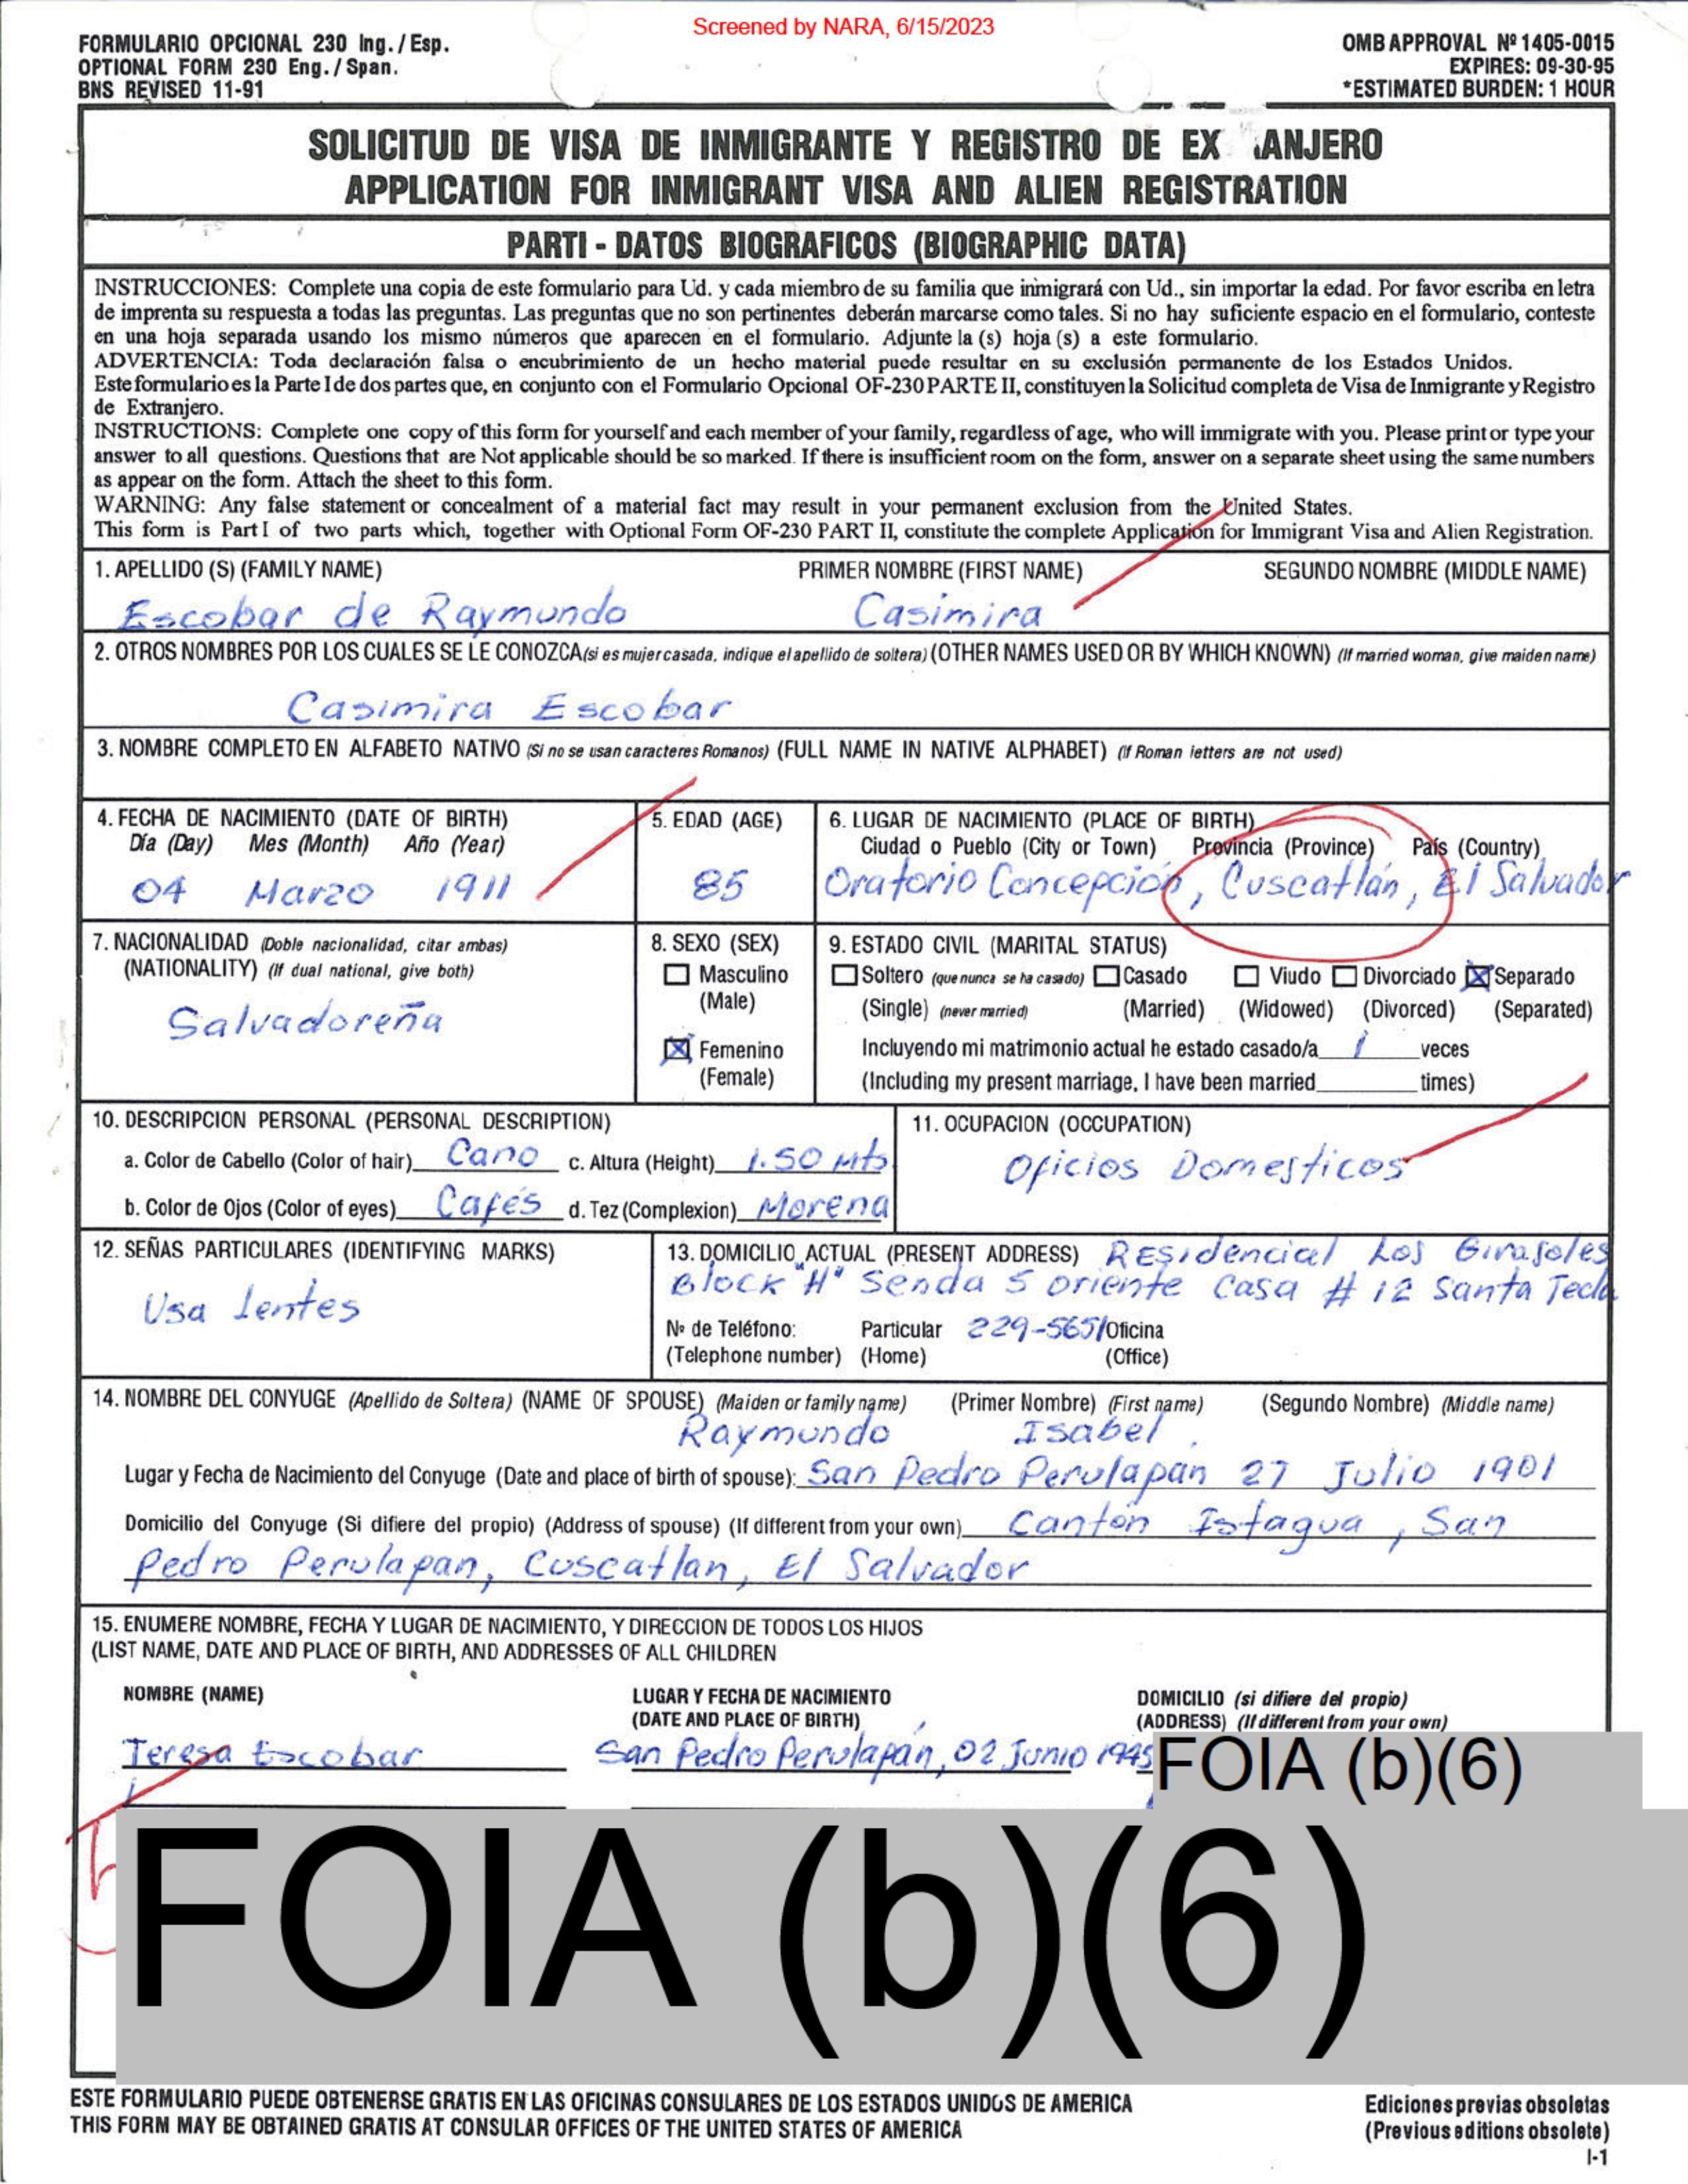 Screened by NARA, 6/15/2023
FORMULARIO OPCIONAL 230 Ing./Esp.
OPTIONAL FORM 230 Eng./Span.
BNS REVISED 11-91
OMB APPROVAL Nº 1405-0015
EXPIRES: 09-30-95
*ESTIMATED BURDEN: 1 HOUR
SOLICITUD DE VISA DE INMIGRANTE Y REGISTRO DE EX ANJERO
APPLICATION FOR INMIGRANT VISA AND ALIEN REGISTRATION
PARTI - DATOS BIOGRAFICOS (BIOGRAPHIC DATA)
INSTRUCCIONES: Complete una copia de este formulario para Ud. y cada miembro de su familia que inmigrará con Ud., sin importar la edad. Por favor escriba en letra
de imprenta su respuesta a todas las preguntas. Las preguntas que no son pertinentes deberán marcarse como tales. Si no hay suficiente espacio en el formulario, conteste
en una hoja separada usando los mismo números que aparecen en el formulario. Adjunte la (s) hoja (s) a este formulario.
ADVERTENCIA: Toda declaración falsa o encubrimiento de un hecho material puede resultar en su exclusión permanente de los Estados Unidos.
Este formulario es la Parte I de dos partes que, en conjunto con el Formulario Opcional OF-230 PARTE II, constituyen la Solicitud completa de Visa de Inmigrante y Registro
de Extranjero.
INSTRUCTIONS: Complete one copy of this form for yourself and each member of your family, regardless of age, who will immigrate with you. Please print or type your
answer to all questions. Questions that are Not applicable should be so marked. If there is insufficient room on the form, answer on a separate sheet using the same numbers
as appear on the form. Attach the sheet to this form.
WARNING: Any false statement or concealment of a material fact may result in your permanent exclusion from the United States.
This form is Part I of two parts which, together with Optional Form OF-230 PART II, constitute the complete Application for Immigrant Visa and Alien Registration.
1. APELLIDO (S) (FAMILY NAME) PRIMER NOMBRE (FIRST NAME) SEGUNDO NOMBRE (MIDDLE NAME)
Escobar de Raymundo Casimira
2. OTROS NOMBRES POR LOS CUALES SE LE CONOZCA (si es mujer casada, indique el apellido de soltera) (OTHER NAMES USED OR BY WHICH KNOWN) (If married woman, give maiden name)
Casimira Escobar
3. NOMBRE COMPLETO EN ALFABETO NATIVO (Si no se usan caracteres Romanos) (FULL NAME IN NATIVE ALPHABET) (if Roman letters are not used)
4. FECHA DE NACIMIENTO (DATE OF BIRTH)
Día (Day) Mes (Month) Año (Year)
04 Marzo 1911
5. EDAD (AGE)
85
6. LUGAR DE NACIMIENTO (PLACE OF BIRTH)
Ciudad o Pueblo (City or Town) Provincia (Province) País (Country)
Oratorio Concepción, Cuscatlán, El Salvador
7. NACIONALIDAD (Doble nacionalidad, citar ambas)
(NATIONALITY) (If dual national, give both)
Salvadoreña
8. SEXO (SEX)
Masculino
(Male)
Femenino
(Female)
9. ESTADO CIVIL (MARITAL STATUS)
Soltero (que nunca se ha casado) Casado Viudo Divorciado Separado
(Single) (never married) (Married) (Widowed) (Divorced) (Separated)
Incluyendo mi matrimonio actual he estado casado/a 1 veces
(Including my present marriage, I have been married times)
10. DESCRIPCION PERSONAL (PERSONAL DESCRIPTION)
a. Color de Cabello (Color of hair) Cano c. Altura (Height) 1.50 Mts
b. Color de Ojos (Color of eyes) Cafés d. Tez (Complexion) Morena
11. OCUPACION (OCCUPATION)
Oficios Domesticos
12. SEÑAS PARTICULARES (IDENTIFYING MARKS)
Usa lentes
13. DOMICILIO ACTUAL (PRESENT ADDRESS) Residencial Los Girasoles
Block "H" Senda 5 oriente Casa # 12 Santa Tecla
Nº de Teléfono: Particular 229-5651 Oficina
(Telephone number) (Home) (Office)
14. NOMBRE DEL CONYUGE (Apellido de Soltera) (NAME OF SPOUSE) (Maiden or family name) (Primer Nombre) (First name) (Segundo Nombre) (Middle name)
Raymundo Isabel
Lugar y Fecha de Nacimiento del Conyuge (Date and place of birth of spouse): San Pedro Perulapan 27 Julio 1901
Domicilio del Conyuge (Si difiere del propio) (Address of spouse) (If different from your own) Cantón Istagua, San
Pedro Perulapan, Cuscatlan, El Salvador
15. ENUMERE NOMBRE, FECHA Y LUGAR DE NACIMIENTO, Y DIRECCION DE TODOS LOS HIJOS
(LIST NAME, DATE AND PLACE OF BIRTH, AND ADDRESSES OF ALL CHILDREN
NOMBRE (NAME) LUGAR Y FECHA DE NACIMIENTO DOMICILIO (si difiere del propio)
(DATE AND PLACE OF BIRTH) (ADDRESS) (If different from your own)
Teresa Escobar San Pedro Perulapán, 02 Junio 1945 FOIA (b)(6)
FOIA (b)(6)
ESTE FORMULARIO PUEDE OBTENERSE GRATIS EN LAS OFICINAS CONSULARES DE LOS ESTADOS UNIDOS DE AMERICA
THIS FORM MAY BE OBTAINED GRATIS AT CONSULAR OFFICES OF THE UNITED STATES OF AMERICA
Ediciones previas obsoletas
(Previous editions obsolete)
I-1